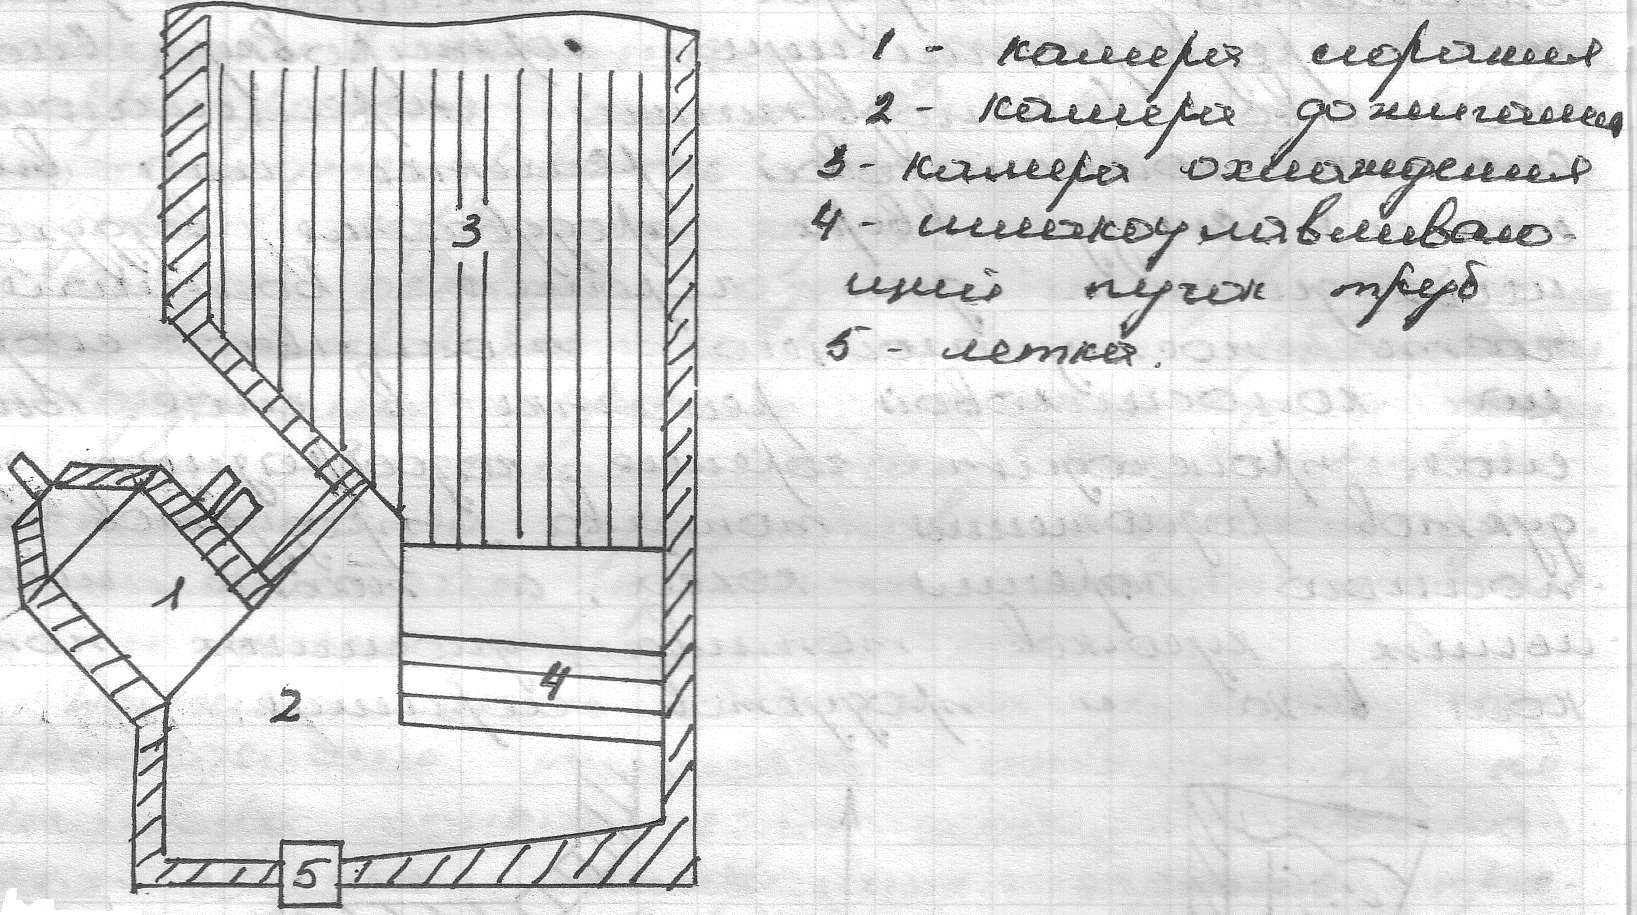 1 - камера сгорания
2 - камера дожигания
3 - камера охлаждения
4 - шлакоулавливаю-
щий пучок труб
5 - летка.
3
1
4
2
5